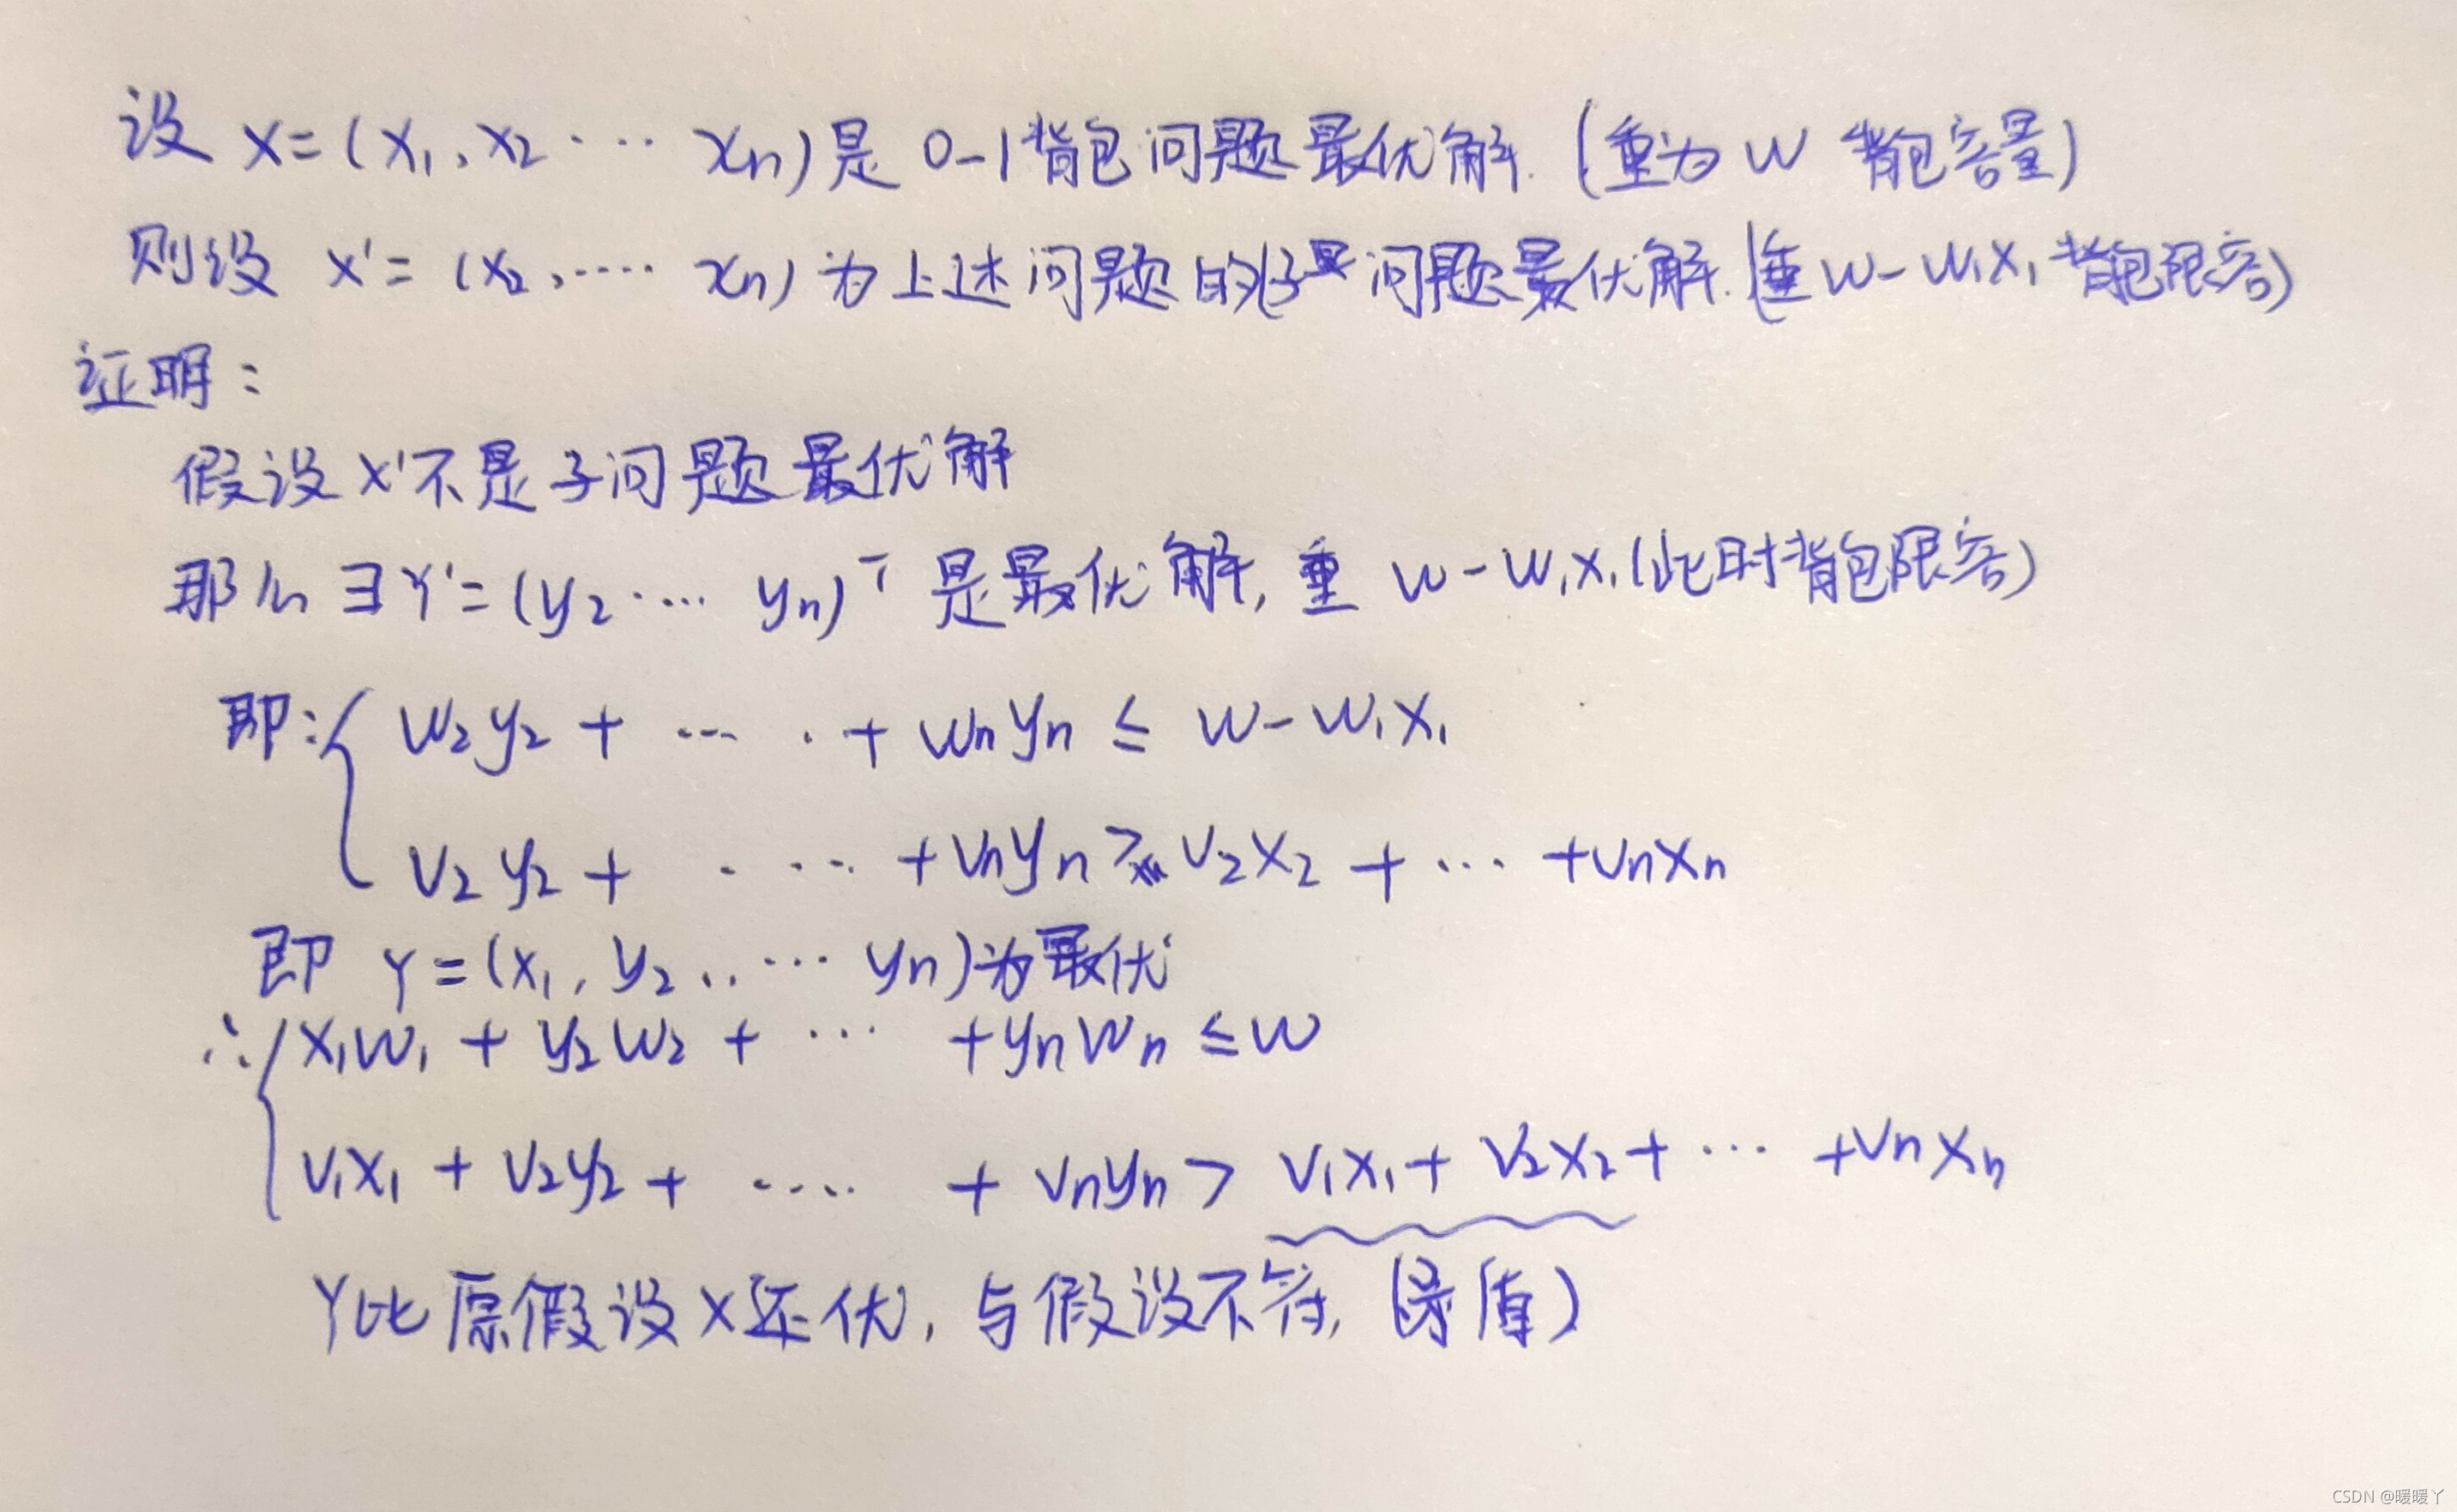 设 X=(x₁,x₂ ··· xn)是 0-1背包问题最优解.(重为 W 背包容量)
则设 X'=(x₂,···· xn)为上述问题的子问题最优解.(重W-W₁X₁背包限容)
证明:
假设X'不是子问题最优解
那么∃Y'=(y₂···· yn)ᵀ是最优解,重 W-W₁X₁(此时背包限容)
即:{ W₂y₂ + ··· · + Wnyn ≤ W-W₁X₁
V₂y₂ + · ··· +Vnyn > V₂X₂ + ··· +VnXn
即 Y=(X₁,y₂,.··· yn)为最优
∴{ X₁W₁ + y₂W₂ + ··· +ynWn ≤W
V₁X₁ + V₂y₂ + ···· + Vnyn > V₁X₁+ V₂X₂+ ··· +VnXn
Y比原假设X还优,与假设不符,(矛盾)
CSDN @暖暖丫